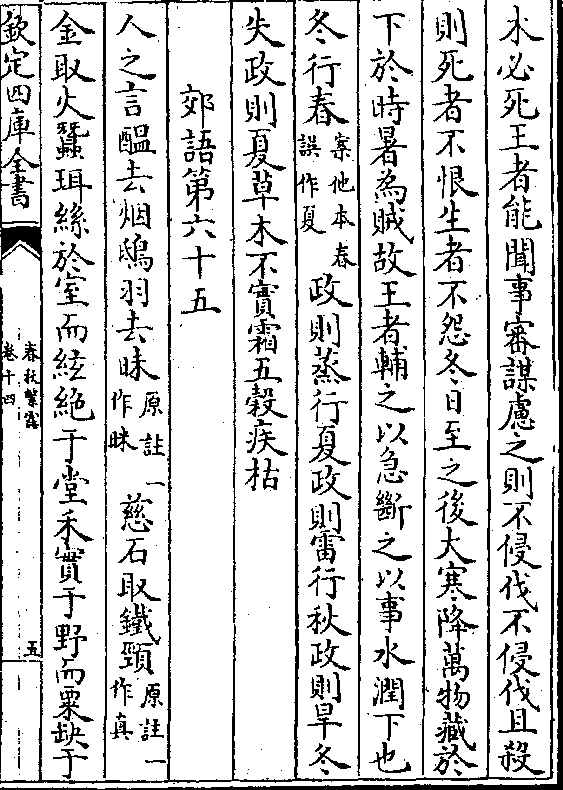 木必死王者能聞事審謀慮之則不侵伐不侵伐且殺
則死者不恨生者不怨冬日至之後大寒降萬物藏於
下於時暑為賊故王者輔之以急斷之以事水潤下也
冬行春案他本春誤作夏政則蒸行夏政則雷行秋政則旱冬
失政則夏草木不實霜五穀疾枯
郊語第六十五
人之言醖去烟鴟羽去昧原註一作眯慈石取鐵頸原註一作真
金取火蠶珥絲於室而絃絶于堂禾實于野而粟缺于
欽定四庫全書
春秋繁露
卷十四
五